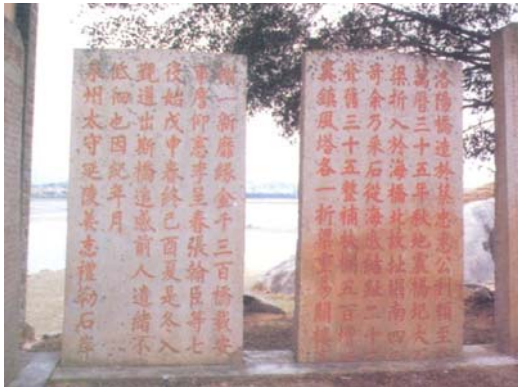 洛陽橋造於蔡忠惠公利賴至
萬曆三十五年秋地震橋圮大
梁折入於海橋北故址梁南四
奇余乃采石從海底結甃二十
舊三十五整補扶欄五百增
鎮風塔各一折梁重易關樓
一新靡緣金千三百橋載安
軍詹仰憲李呈春張綸臣等七
役始戊申春終己酉夏是冬入
覲道出斯橋追感前人遺緒不
低佪也因紀年月
泉州太守延陵姜志禮勒石岸